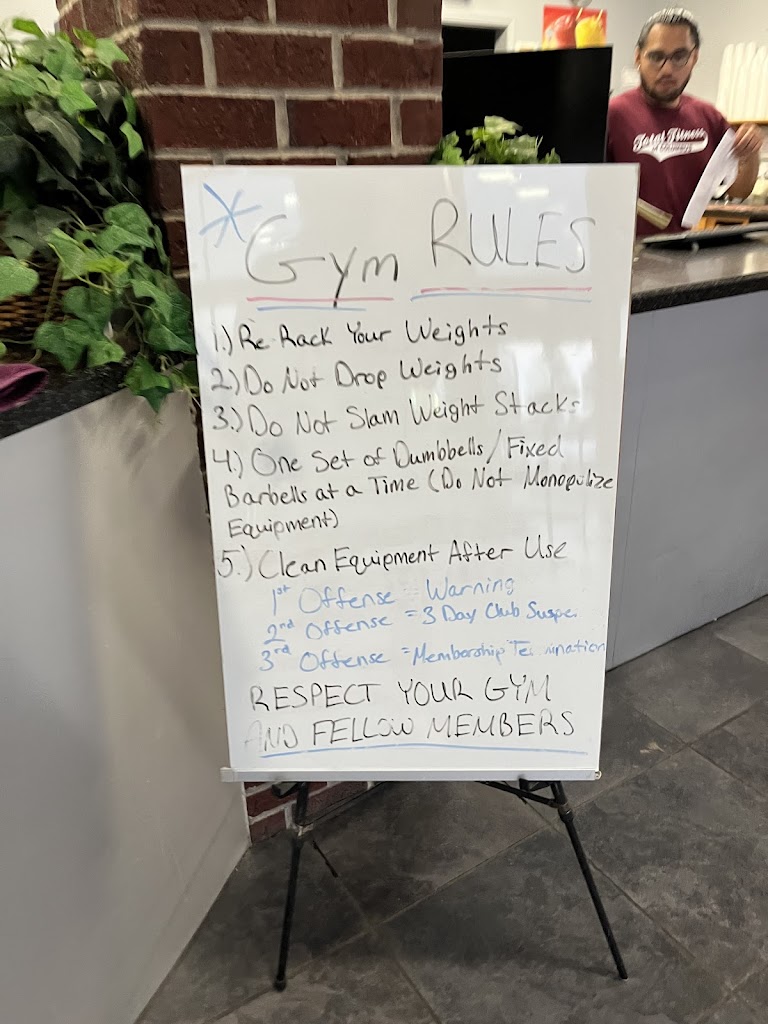 * Gym RULES
1.) Re-Rack Your Weights
2.) Do Not Drop Weights
3.) Do Not Slam Weight Stacks
4.) One Set of Dumbbells/Fixed
Barbells at a Time (Do Not Monopolize
Equipment)
5.) Clean Equipment After Use
1st Offense = Warning
2nd Offense = 3 Day Club Suspe
3rd Offense = Membership Te mination
RESPECT YOUR GYM
AND FELLOW MEMBERS
Total Fitness